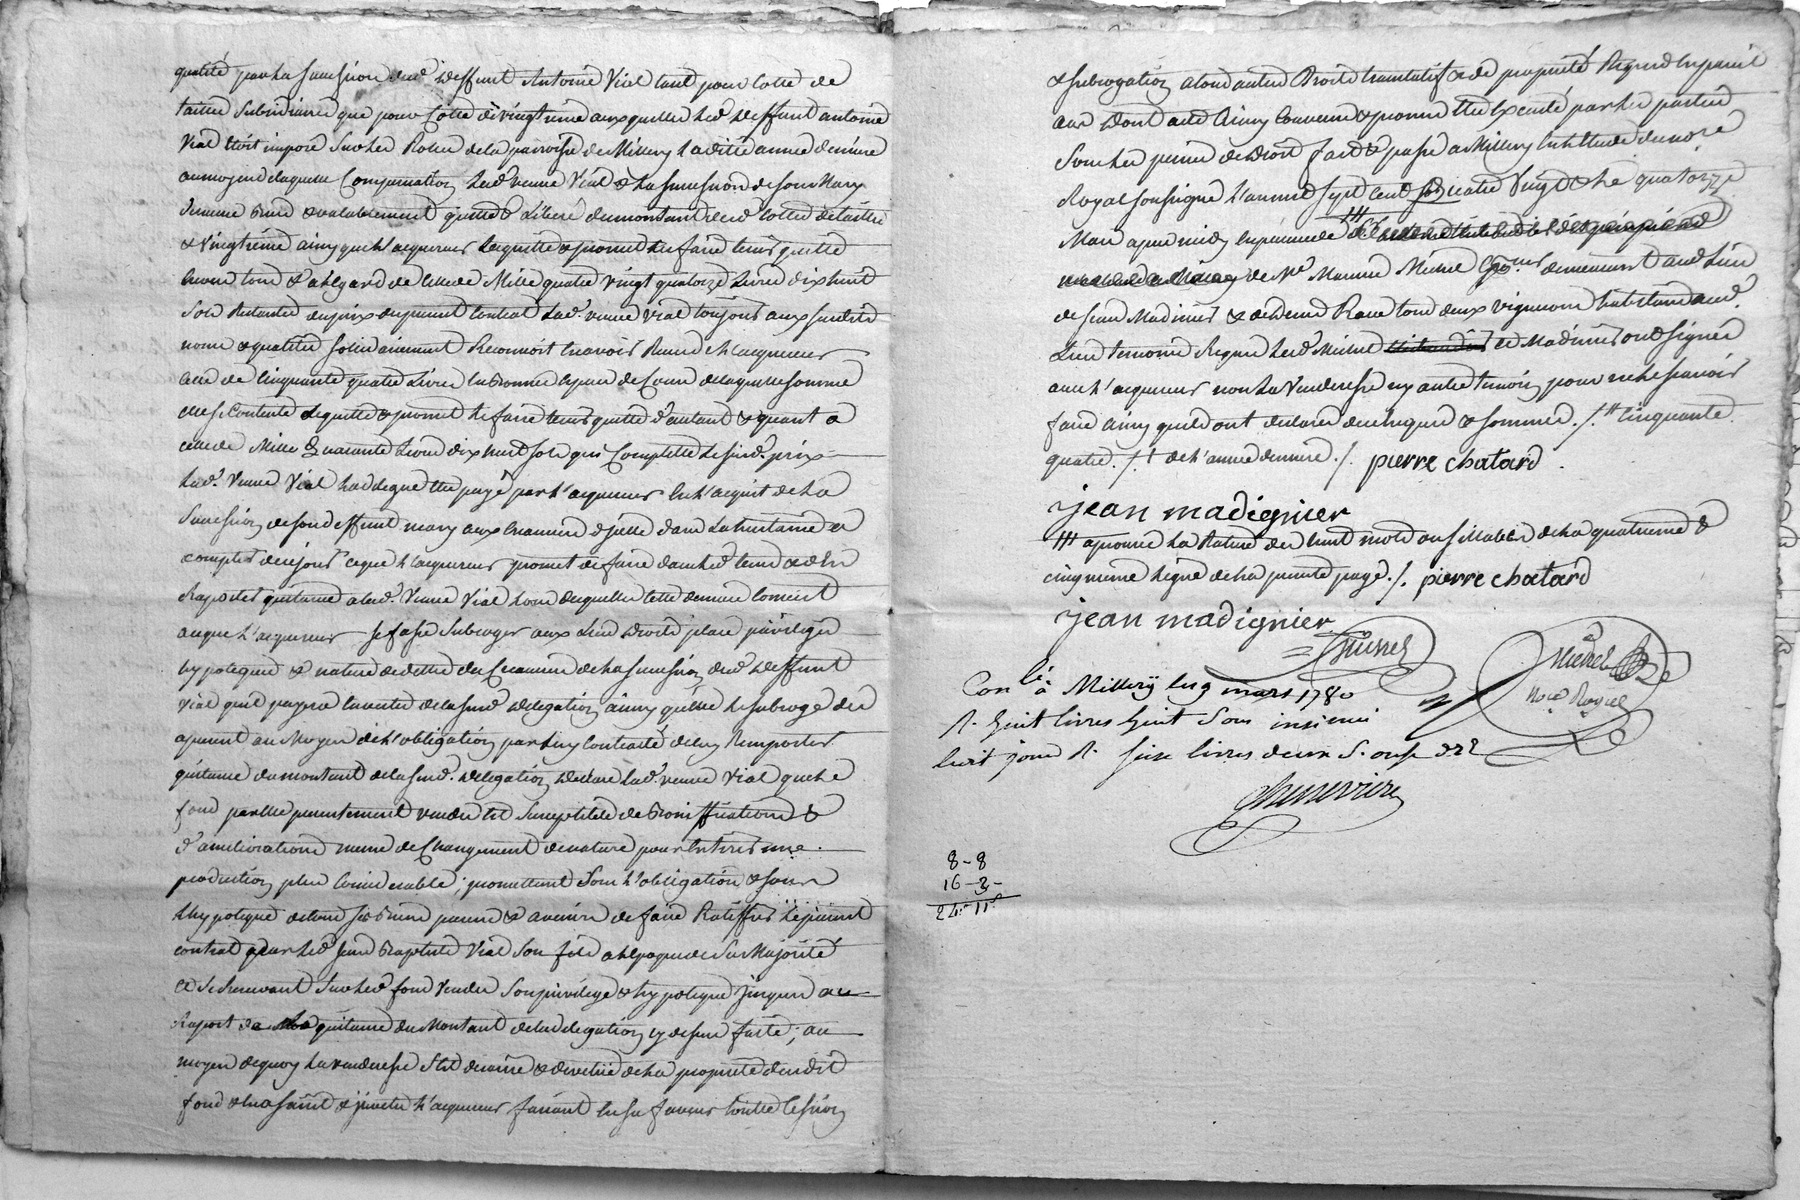 qualité par la succession dud. deffunt Antoine Vial tant pour cotte de
tailles subsidiaires que pour Cotte de vingtieme auxquelles led. deffunt antoine
Vial etoit imposé sur les Roles de la parroisse de Millery laditte année derniere
au moyen de laquelle Compensation lad. veuve Vial & la succession de son Mary
demeure bien & valablement quitte & libéré du montant desd. cottes de tailles
& vingtieme ainsy que l'acquereur les quitte & promet les faire tenir quitte
envers tous & a l'egard de celle de Mille quatre vingt quatorze Livres dix huit
Sols Restantes du prix du present contrat lad. veuve vial toujours aux susdits
noms & qualités solidairement Reconnoit avoir Reçu de l'acquereur
celle de Cinquante quatre Livres en bonnes especes de Cours de laquelle somme
elle se Contente le quitte & promet le faire tenir quitte d'autant & quant a
celle de Mille Quarante Livres dix huit sols qui Complette le susd. prix
lad. Veuve Vial la delegue etre payé par l'acquereur en l'acquit de la
Succession de son deffunt mary aux Creanciers d'jcelle dans la huitaine a
compter de ce jour ce que l'acquereur promet de faire dans led. tems & d'en
Raporter quittance a lad. Veuve Vial lors desquelles cette derniere consent
a ce que l'acquereur se fasse subroger aux Lieu droits place privileges
hypoteques & nature de dettes des Creanciers de la succession dud. deffunt
Vial qu'il payera en vertu de la susd. delegation ainsy qu'elle le subroge des
apresent au Moyen de l'obligation par luy Contracté de luy Remporter
quittance du montant de la susd. delegation declare lad. veuve vial que le
fond par elle presentement vendu est susceptible de bonniffications &
d'ameliorations meme de Changement de nature pour en tirer une
production plus Considerable; promettant sous l'obligation & sous
l'hypoteque de tous ses biens presens & avenirs de faire Ratiffier le present
contrat par led. Jean Baptiste Vial son fils a l'epoque de sa Majorité
et se Reservant sur led. fond vendu son privilege & hypoteque jusques au
Raport de la quittance du Montant de la delegation cy dessus faite; au
moyen de quoy la venderesse s'est demise & devetue de la propriété dudit
fond & en a saisit & jnvetu l'acquereur faisant en sa faveur toutte cession
& subrogation a tous autres Droits translatifs & de propriété Requis en pareil
cas dont acte Ainsy Convenu & promis etre Executé par les parties
sous les peines de droit fait & passé a Millery en l'Etude du no.re
Royal soussigné l'an mil sept cent quatre Vingt & le quatorze
Mars apres midy en presence de
de Me. Maurice Michel demeurant aud. Lieu
de Jean Madinier & de Roue tous deux vignerons habitans aud.
Lieu temoins Requis led. Michel et Madinier ont signés
avec l'acquereur non la Venderesse ny autre temoin pour ne le sçavoir
faire ainsy qu'ils ont declarés de ce enquis & sommés ./. Cinquante
quatre ./. de l'année derniere ./. pierre chatard
jean madignier
approuvé la Rature des huit mots aux sillabes de la quatrieme &
cinquieme ligne de la presente page ./. pierre chatard
jean madignier
Michel
Michel
No.re Royal
Con.lé a Millery le 9 mars 1780
R. huit livres huit Sous insinué
led. jour R. seize livres deux S. onse d.rs
Chenevriere
8-8
16-3-
24-11